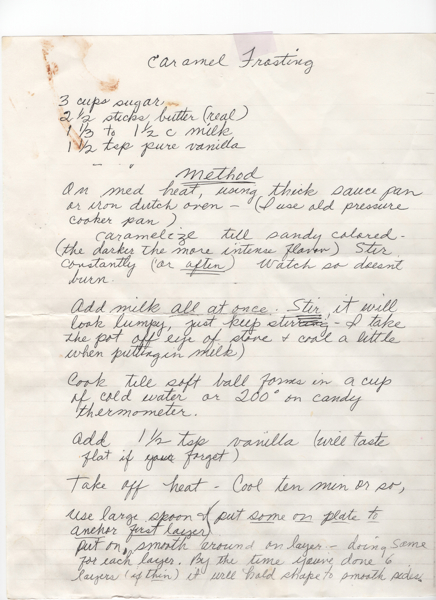 Caramel Frosting
3 cups sugar
2 1/2 sticks butter (real)
1 1/3 to 1 1/2 c milk
1 1/2 tsp pure vanilla
Method
On med heat, using thick sauce pan
or iron dutch oven - (I use old pressure
cooker pan)
caramelize till sandy colored -
(the darker the more intense flavor) Stir
constantly (or often) Watch so doesnt
burn.
Add milk all at once. Stir, it will
look lumpy, just keep stirring - I take
the pot off eye of stove & cool a little
when putting in milk)
Cook till soft ball forms in a cup
of cold water or 200° on candy
thermometer.
Add 1 1/2 tsp vanilla (will taste
flat if you forget)
Take off heat - Cool ten min or so,
Use large spoon & (put some on plate to
anchor first layer)
Put on, smooth around on layer - doing same
for each layer. By the time you've done 6
layers (if thin) it will hold shape to smooth sides.